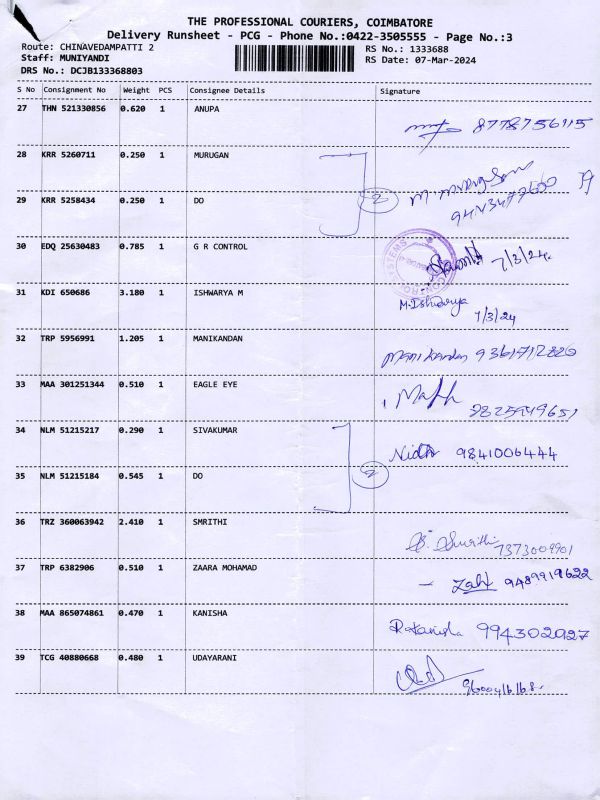 THE PROFESSIONAL COURIERS, COIMBATORE
Delivery Runsheet - PCG - Phone No.:0422-3505555 - Page No.:3
Route: CHINAVEDAMPATTI 2 RS No.: 1333688
Staff: MUNIYANDI RS Date: 07-Mar-2024
DRS No.: DCJB133368803
S No Consignment No Weight PCS Consignee Details Signature
27 THN 521330856 0.620 1 ANUPA
8778756115
28 KRR 5260711 0.250 1 MURUGAN
2
29 KRR 5258434 0.250 1 DO
30 EDQ 25630483 0.785 1 G R CONTROL
7/3/24.
31 KDI 650686 3.180 1 ISHWARYA M
M. Ishwarya
7/3/24
32 TRP 5956991 1.205 1 MANIKANDAN
Mani kandan 9361712820
33 MAA 301251344 0.510 1 EAGLE EYE
34 NLM 51215217 0.290 1 SIVAKUMAR
9841006444
2
35 NLM 51215184 0.545 1 DO
36 TRZ 360063942 2.410 1 SMRITHI
Smrithi 7373009901
37 TRP 6382906 0.510 1 ZAARA MOHAMAD
9489919622
38 MAA 865074861 0.470 1 KANISHA
R. Kanisha 994302027
39 TCG 40880668 0.480 1 UDAYARANI